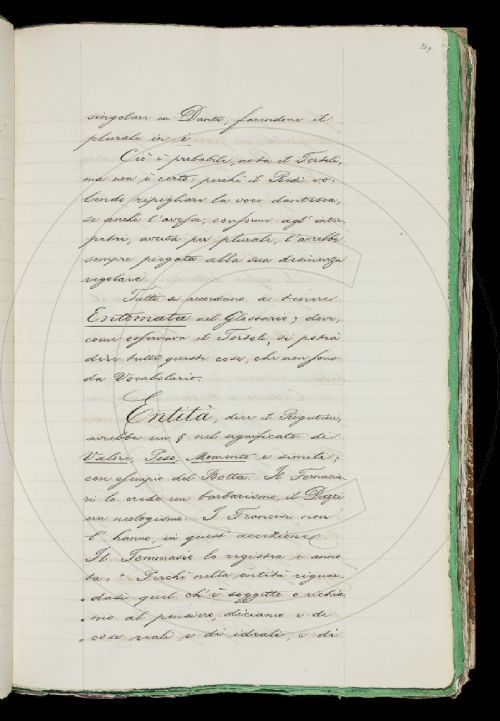 309
singolare in Dante, facendone il
plurale in i
Ciò è probabile, nota il Tortoli,
ma non è certo, perchè il Redi vo-
lendo ripigliare la voce dantesca,
se anche l'avesse, conforme agl' inter-
petri, avuta per plurale, l'avrebbe
sempre piegata alla sua desinenza
regolare.
Tutti si accordano a tenere
Entomata nel Glossario; dove,
come osservava il Tortoli, si potrà
dire tutte queste cose, che non sono
da Vocabolario.
Entità, dice il Rigutini,
avrebbe un § nel significato di
Valore, Peso, Momento e simile;
con esempio del Botta. Il Fornacia-
ri lo crede un barbarismo, il Dazzi
un neologismo. I Francesi non
l' hanno, in quest' accezione.
Il Tommaseo lo registra e anno-
ta: " Perchè nella entità riguar-
" dasi quel ch'è soggetto o richia-
" mo al pensiero, diciamo e di
" cose reali e di ideali, e di